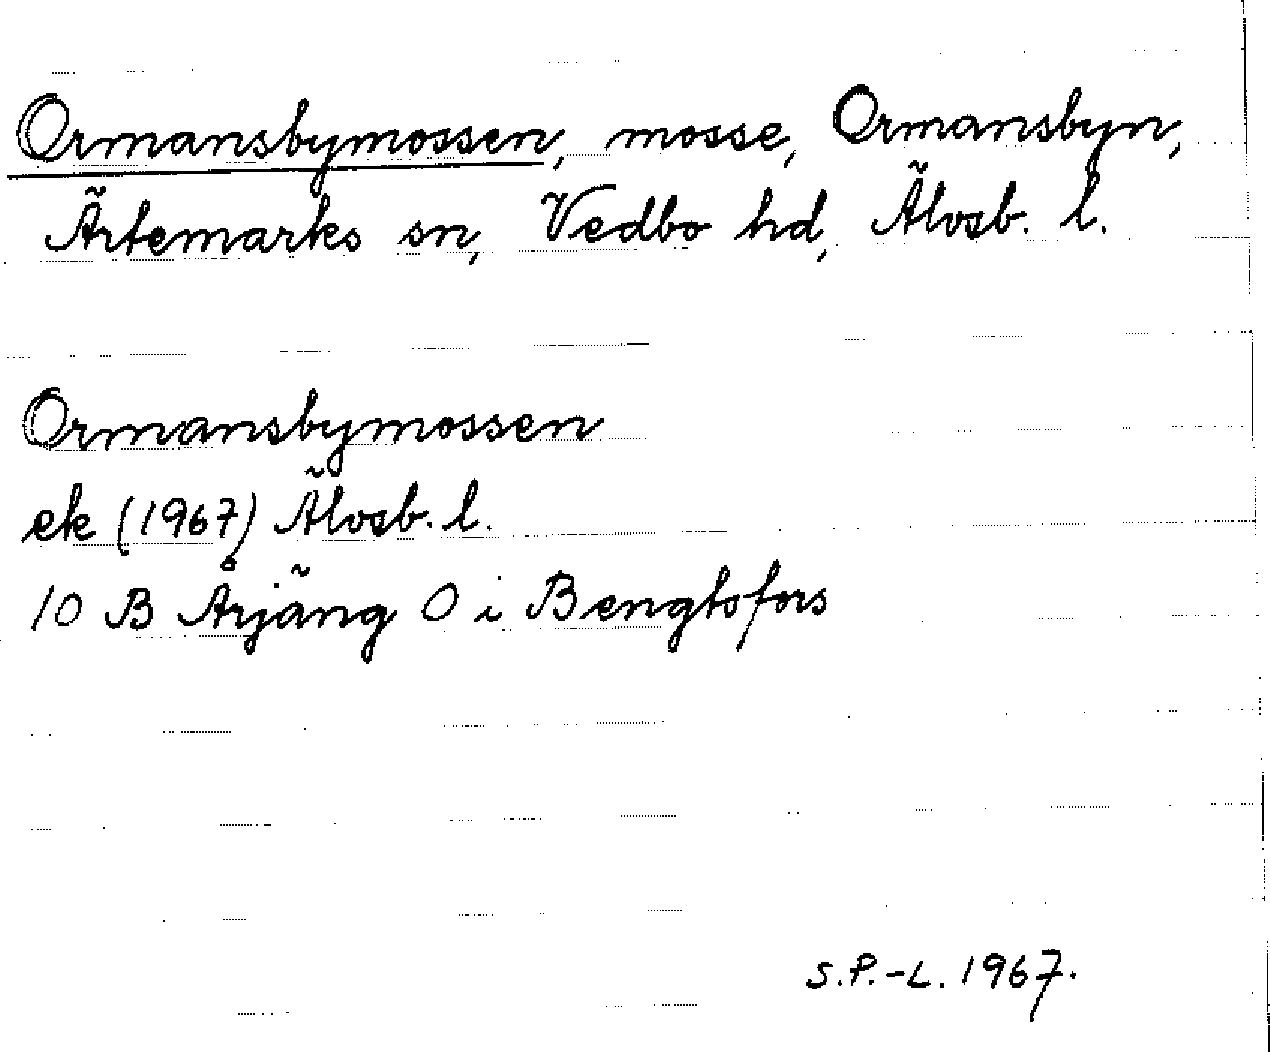 Ormansbymossen, mosse, Ormansbyn,
Ärtemarks sn, Vedbo hd, Älvsb. l.
Ormansbymossen
ek (1967) Älvsb. l.
10 B Årjäng O i Bengtsfors
S.P.-L. 1967.